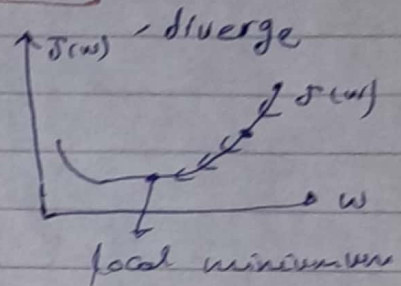 J(w) - diverge
J(w)
w
local minimum